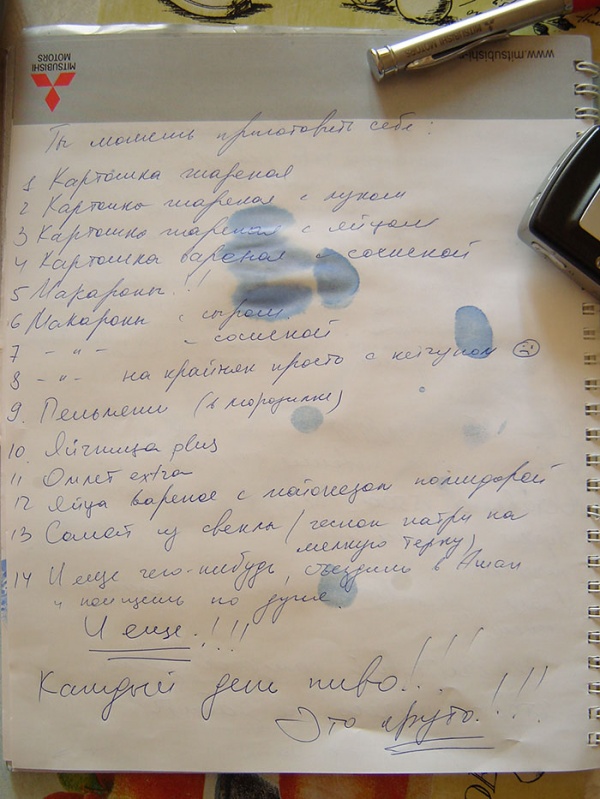 www.mitsubishi-
MITSUBISHI
MOTORS
MITSUBISHI MOTORS
Ты можешь приготовить себе:
1 Картошка жареная
2 Картошка жареная с луком
3 Картошка жареная с яйцом
4 Картошка вареная с сосиской
5 Макароны!!
6 Макароны с сыром
7 - " - с сосиской
8 - " - на крайняк просто с кетчупом ☹
9. Пельмени (в морозилке)
10. Яичница plus
11 Омлет extra
12 Яйца вареное с майонезом помидорой
13 Салат из свеклы (чеснок натри на
мелкую терку)
14 И еще чего-нибудь, съездишь в Ашан
и поищешь по душе.
И еще!!!!
Каждый день пиво!...!!!
Это круто.!!!